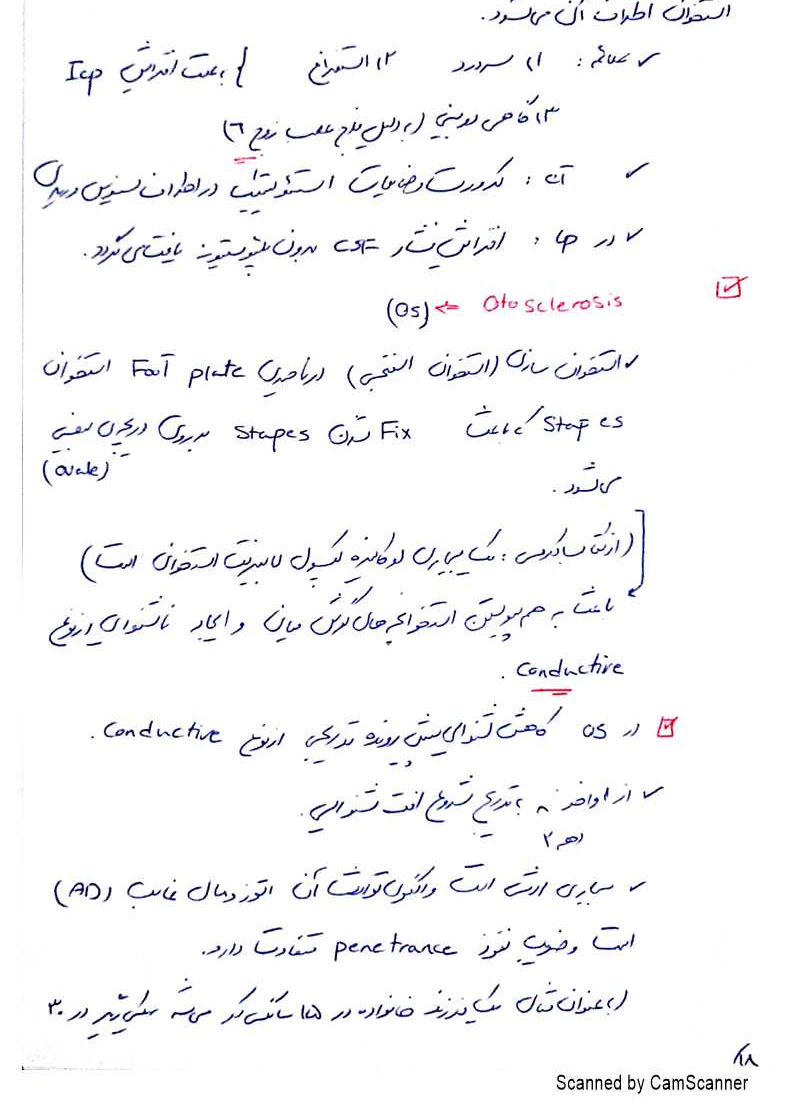 استخوان اطراف آن می‌شود.
✓ علائم: ۱) سردرد ۲) استفراغ } باعث افزایش Icp
۳) گاهی دوبینی (به دلیل فلج عصب زوج ۶)
✓ : کدورت و ضایعات استئولیتیک در اطراف سینوس
✓ در : افزایش فشار CSF بدون یافت می‌گردد.
☑ Otosclerosis ⇐ (Os)
✓ استخوان سازی (استخوان اسفنجی) در ناحیه‌ی Foot plate استخوان
Stapes که باعث Fix شدن Stapes بر روی دریچه‌ی بیضی
(ovale)
می‌شود.
(اتواسکلروزیس: یک بیماری لوکالیزه کپسول لابیرنت استخوانی است)
باعث به هم پیوستن استخوانچه‌های گوش میانی و ایجاد ناشنوایی از نوع
Conductive.
☑ در OS کاهش شنوایی پیش رونده تدریجی از نوع Conductive.
✓ از اواخر به تدریج شروع افت شنوایی.
دهه ۲
✓ بیماری ارثی است و الگوی توارث آن اتوزومال غالب (AD)
است و ضریب نفوذ penetrance متفاوت دارد.
(به عنوان مثال یک فرزند خانواده در ۱۵ سالگی کر می‌شه یکی دیگر در ۳۰
Scanned by CamScanner